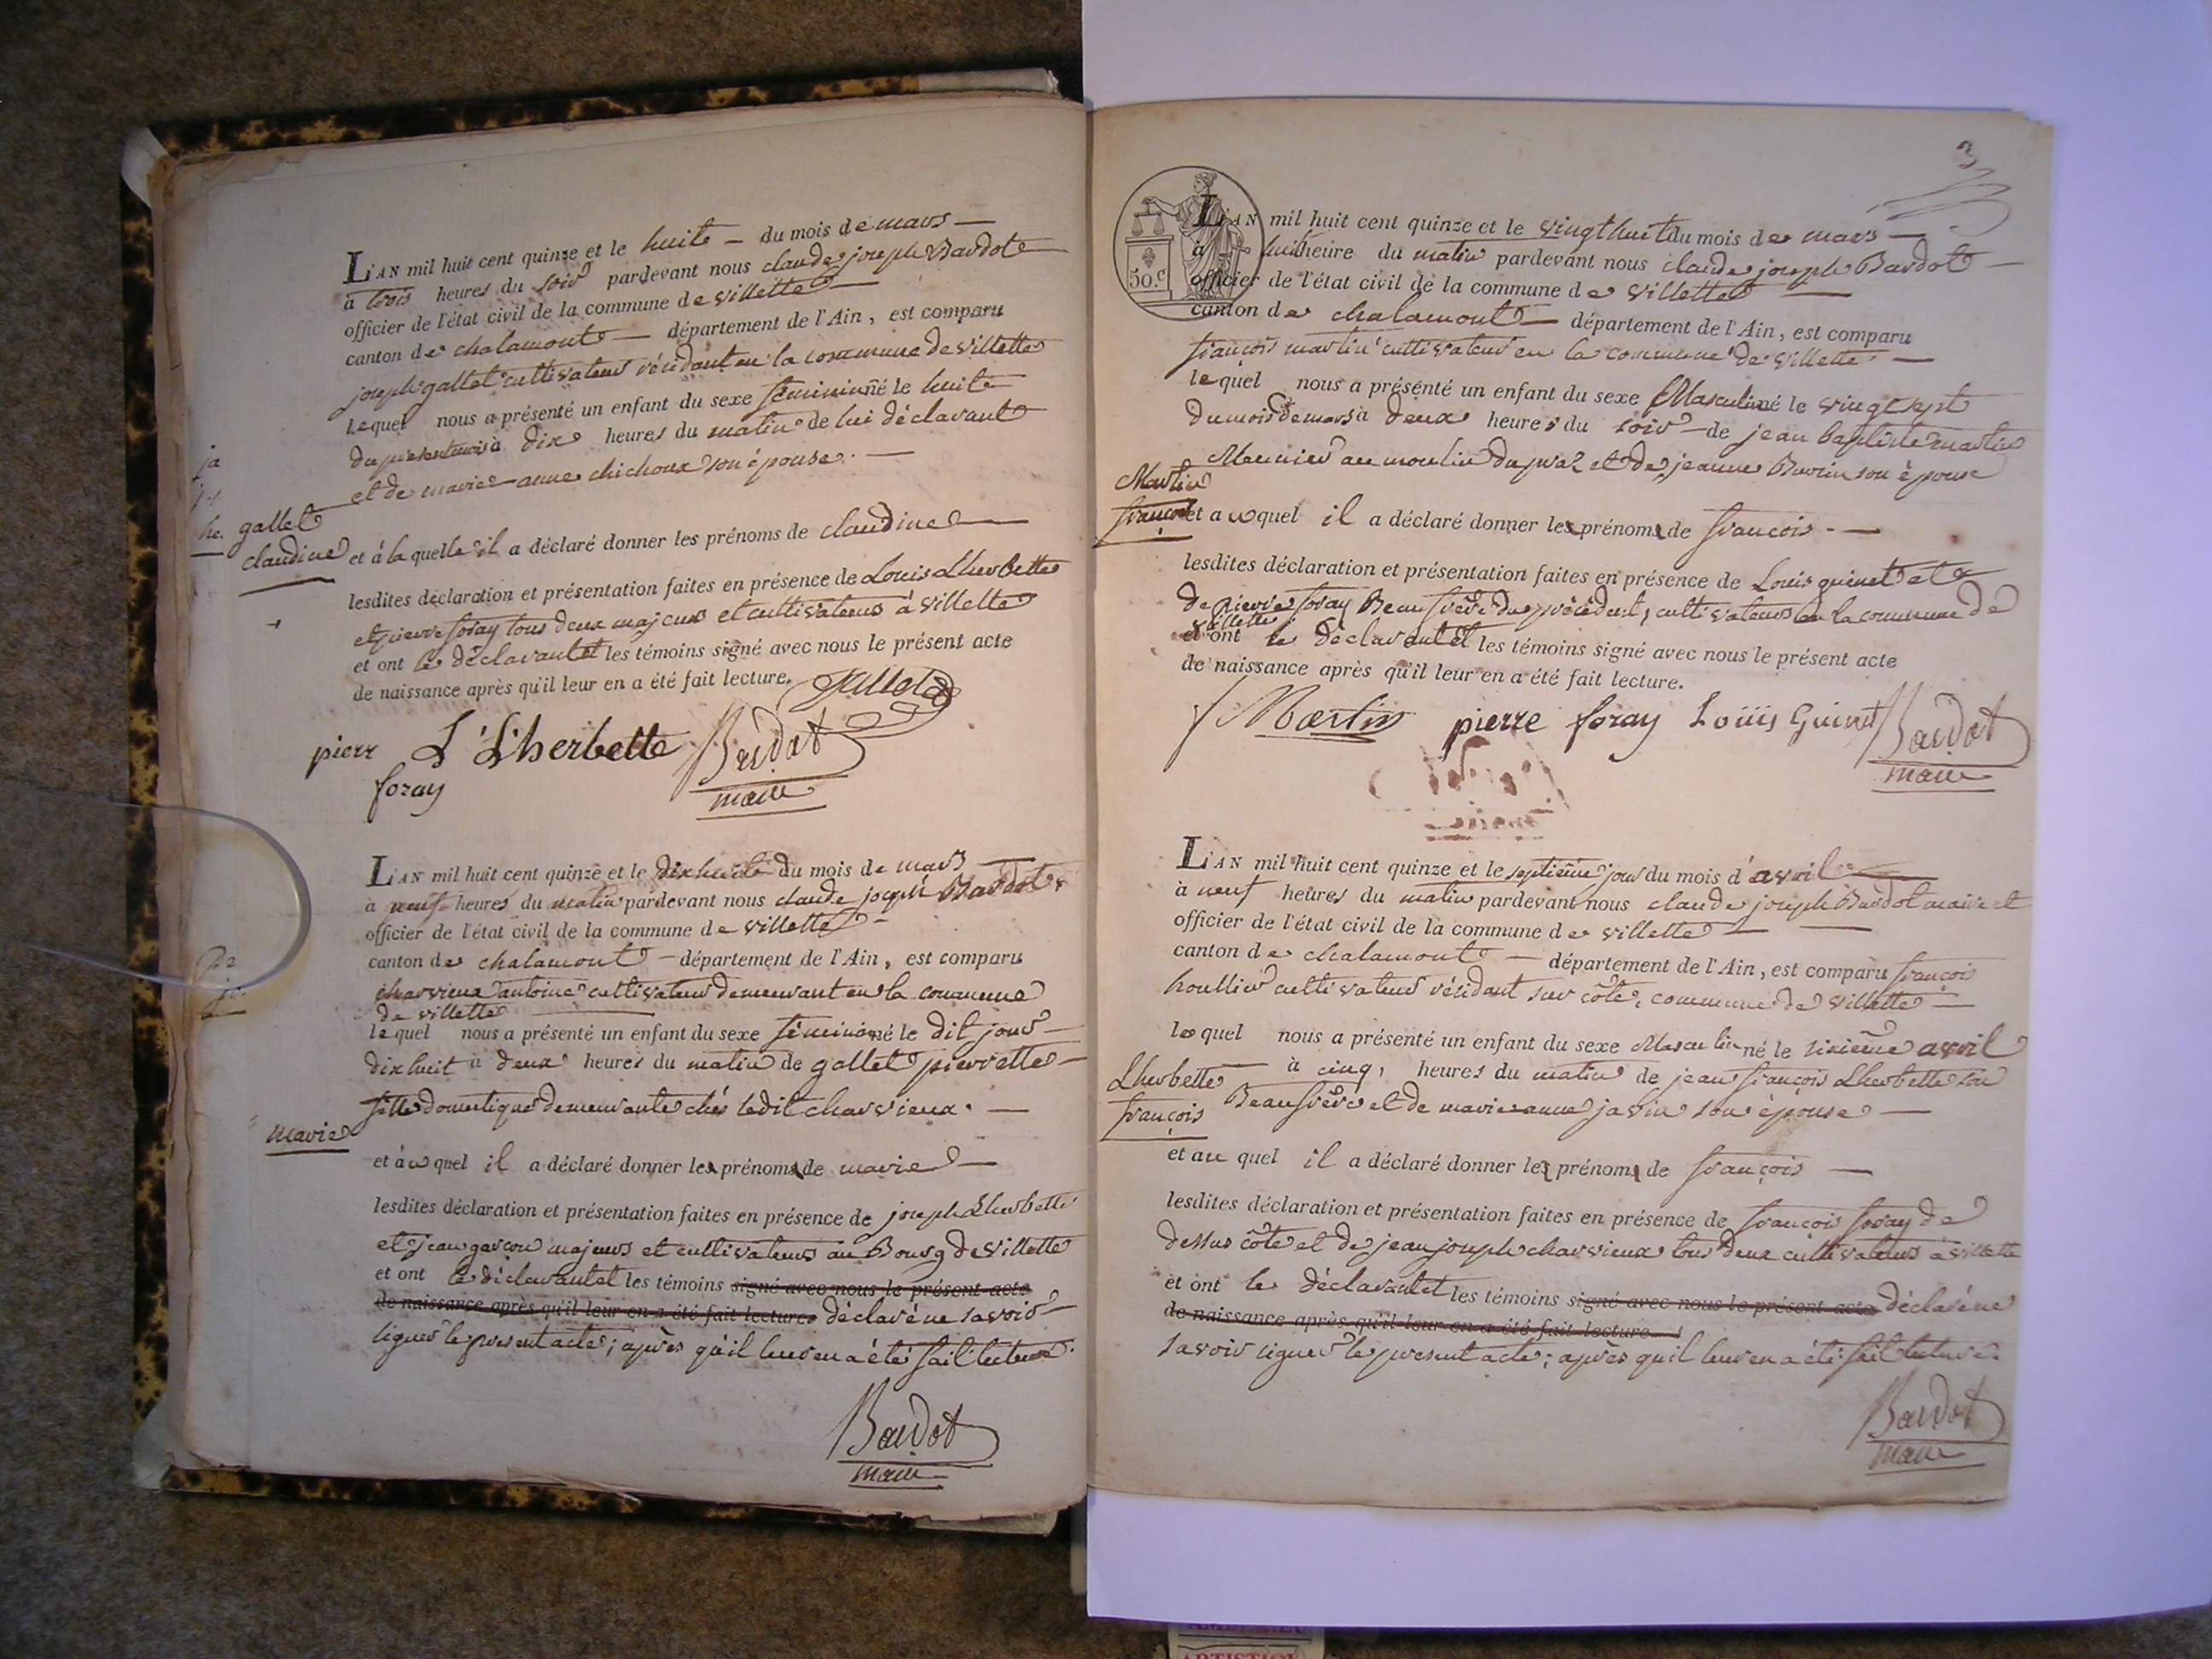 L'AN mil huit cent quinze et le huite — du mois de mars —
à trois heures du soir pardevant nous claude joseph Bardot
officier de l'état civil de la commune de villette
canton de chalamont — département de l'Ain, est comparu
joseph gallet cultivateur résidant en la commune de villette
Lequel nous a présenté un enfant du sexe féminin né le huite
du présent mois à dix heures du matin de lui déclarant
et de marie-anne chichoux son épouse. —
gallet
claudine
et à la quelle il a déclaré donner les prénoms de claudine
lesdites déclaration et présentation faites en présence de Louis Lherbette
et pierre foray tous deux majeurs et cultivateurs à villette
et ont le déclarant et les témoins signé avec nous le présent acte
de naissance après qu'il leur en a été fait lecture. Gallet
pierr L'Lherbette Bardot
foray maire
L'AN mil huit cent quinze et le dix huite du mois de mars
à neuf heures du matin pardevant nous claude joseph Bardot
officier de l'état civil de la commune de villette
canton de chalamont — département de l'Ain, est comparu
charvieux antoine cultivateur demeurant en la commune
de villette
lequel nous a présenté un enfant du sexe féminin né le dit jour
dixhuit à deux heures du matin de gallet pierrette
fille domestique demeurante chés ledit charvieux. —
marie
et à u quel il a déclaré donner les prénoms de marie
lesdites déclaration et présentation faites en présence de joseph Lherbette
et jean garçon majeurs et cultivateurs au Bourg de villette
et ont le déclarant et les témoins signé avec nous le présent acte
de naissance après qu'il leur en a été fait lecture déclaré ne savoir
signer le present acte; après qu'il leur en a été fait lecture.
Bardot
maire
3
50.c
L'AN mil huit cent quinze et le vingt huit du mois de mars
à huit heure du matin pardevant nous claude joseph Bardot
officier de l'état civil de la commune de villette
canton de chalamont — département de l'Ain, est comparu
françois martin cultivateur en la commune de villette —
lequel nous a présenté un enfant du sexe Masculin né le vingt sept
du mois de mars à deux heures du soir de jean baptiste martin
Meunier au moulin du praz et de jeanne Burin son épouse
Martin
françois
et a u quel il a déclaré donner les prénoms de françois. —
lesdites déclaration et présentation faites en présence de Louis guinet et
de pierre foray Beaufrère du précédent, cultivateurs en la commune de
villette
et ont le déclarant et les témoins signé avec nous le présent acte
de naissance après qu'il leur en a été fait lecture.
f Martin pierre foray Loüis Guinet Bardot
maire
L'AN mil huit cent quinze et le septième jour du mois d'avril
à neuf heures du matin pardevant nous claude joseph Bardot maire et
officier de l'état civil de la commune de villette
canton de chalamont — département de l'Ain, est comparu françois
houllier cultivateur résidant sur côte, commune de villette —
lequel nous a présenté un enfant du sexe Masculin né le sixième avril
à cinq, heures du matin de jean françois Lherbette son
Beaufrère et de marie-anne son épouse —
Lherbette
françois
et au quel il a déclaré donner les prénoms de françois —
lesdites déclaration et présentation faites en présence de françois foray de
dessus côte et de jean joseph charvieux tous deux cultivateurs à villette
et ont le déclarant et les témoins signé avec nous le présent acte déclaré ne
de naissance après qu'il leur en a été fait lecture.
savoir signer le présent acte; après qu'il leur en a été fait lecture.
Bardot
maire